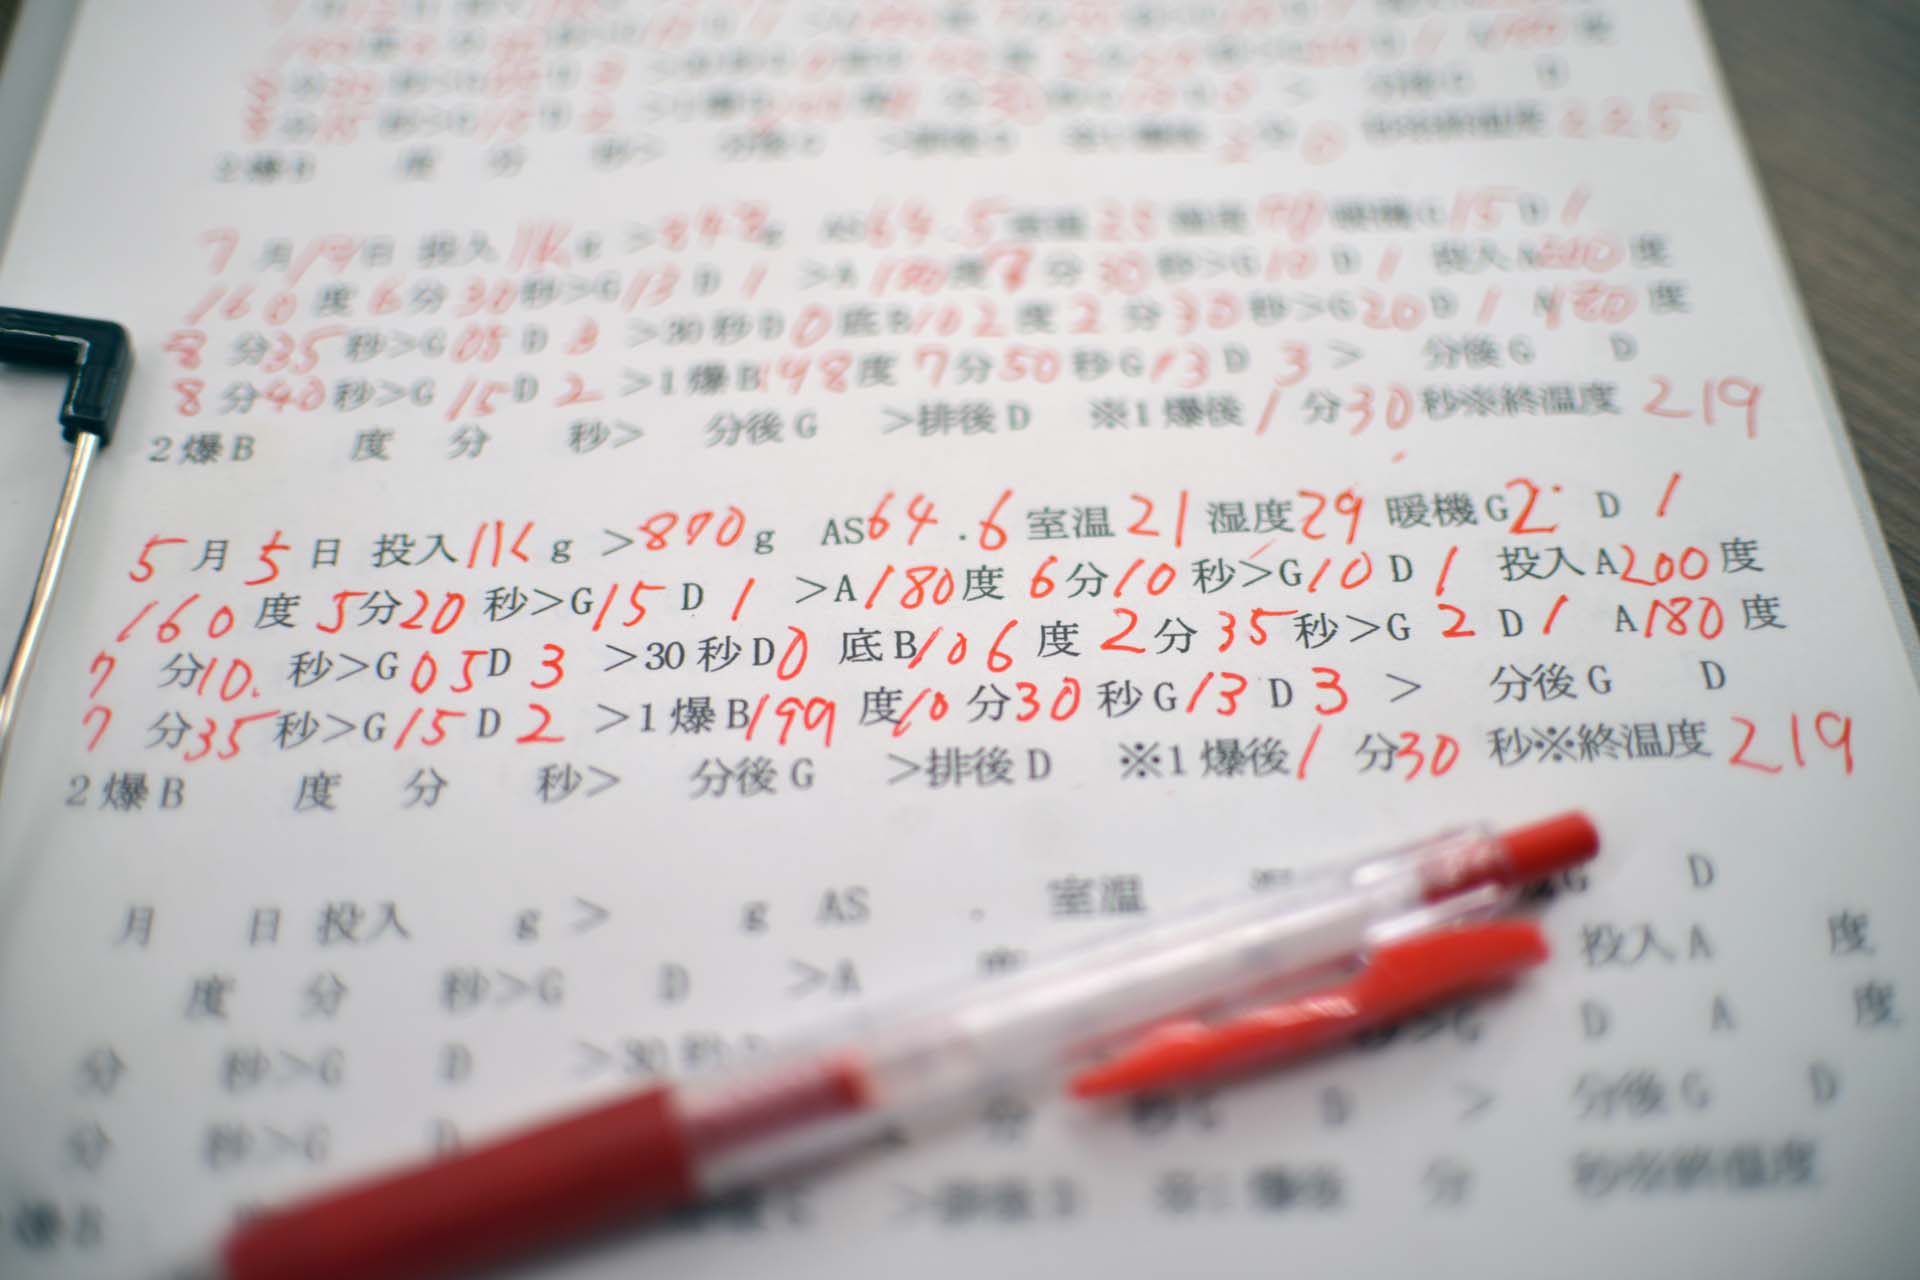 2爆B 度 分 秒> 分後G >排後D ※1爆後2分0 秒※終温度225
7月19日 投入1Kg >848g AS64.5 室温23 湿度70 暖機G15 D1
160度6分30秒>G13 D1 >A180度7分30秒>G10 D1 投入A200度
8分35秒>G05 D3 >30秒D0 底B102度2分30秒>G20D1 A180度
8分40秒>G15D2 >1爆B198度7分50秒G13D3> 分後G D
2爆B 度 分 秒> 分後G >排後D ※1爆後1分30秒※終温度219
5月5日 投入1Kg >870g AS64.6 室温21 湿度29 暖機G2 D1
160度5分20秒>G15 D1 >A180度6分10秒>G10D1 投入A200度
7分10.秒>G05D3 >30秒D0 底B106度2分35秒>G2D1 A180度
7分35秒>G15D2 >1爆B199度10分30秒G13D3> 分後G D
2爆B 度 分 秒> 分後G >排後D ※1爆後1分30秒※終温度219
月 日 投入 g> g AS . 室温 G D
度 分 秒>G D >A 度 投入A 度
分 秒>G D >30秒 D A 度
分 秒>G D 分 D > 分後G D
>排後D ※1爆後 分 秒※終温度